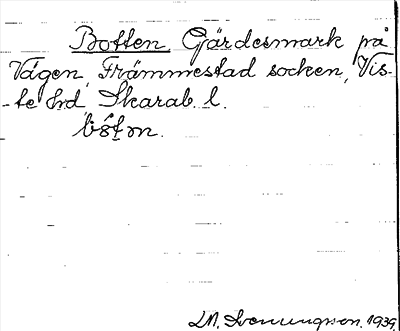 Botten Gärdesmark på
Vågen, Främmestad socken, Vis-
-te hd Skarab. l.
böt̄n.
L.M. Svenungsson. 1939.